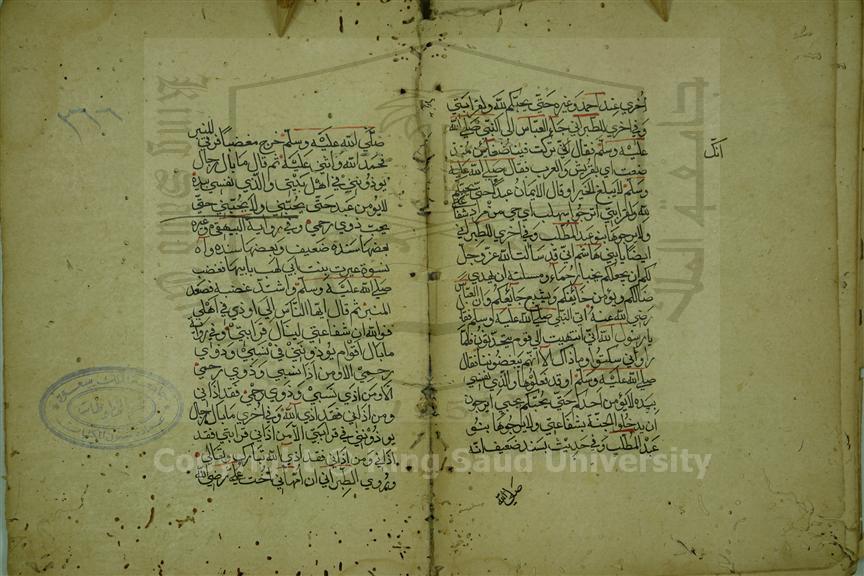 اخري عند احمد وغيره حتى يحبكم لله ولقرابتي
وفي اخري للطبراني جاء العباس الى النبي صلى الله
عليه وسلم فقال انك تركت فينا ضغائن منذ
صنعت اي بقريش والعرب فقال صلى الله عليه
وسلم لا يبلغ الخير او قال الايمان عبد حتى يحبكم
لله ولقرابتي اترجوا سهلب اي حي من مراد شفا
ولا يرجوها بنو عبد المطلب وفي اخري للطبراني
ايضا يا بني هاشم اني قد سالت الله عز وجل
لكم ان يجعلكم نجباء رحماء وسالته ان يهدي
ضالكم ويؤمن خائفكم ويشبع جائعكم وان العباس
رضي الله عنه اتى النبي صلى الله عليه وسلم فقال
يا رسول الله اني انتهيت الى قوم يتحدثون فلما
راوني سكتوا وما ذاك الا انهم يبغضوننا فقال
صلى الله عليه وسلم او قد فعلوها والذي نفسي
بيده لا يؤمن احد حتى يحبكم بحبي ايرجون
ان يدخلوا الجنة بشفاعتي ولا يرجوها بنو
عبد المطلب وفي حديث بسند ضعيف انه
انك
صلى الله
صلى الله عليه وسلم خرج مغضبا فرقى المنبر
فحمد الله واثنى عليه ثم قال ما بال رجال
يوذونني في اهل بيتي والذي نفسي بيده
لا يؤمن عبد حتى يحبني ولا يحبني حتى
يحب ذوي رحمي وفي رواية البيهقي وغيره
بعضها سنده ضعيف وبعضها سنده واه
نسوة عيرت بنت ابي لهب بابيها فغضب
صلى الله عليه وسلم واشتد غضبه فصعد
المنبر ثم قال ايها الناس مالي اوذي في اهلي
فوالله ان شفاعتي لتنال قرابتي وفي رواية
ما بال اقوام يوذونني في نسبي وذوي
رحمي الا ومن اذى نسبي وذوي رحمي
فقد اذاني
ومن اذاني فقد اذى الله وفي اخري ما بال رجال
يوذونني في قرابتي الا من اذى قرابتي فقد
اذاني ومن اذاني فقد اذى الله تبارك وتعالى
وروي الطبراني ان ام هاني اخت علي رضي الله
٣٦٦
جامعة الملك سعود
Copyright © King Saud University